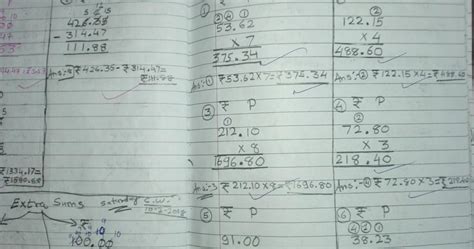 5 15
426.35
- 314.47
111.88
Ans:- ₹426.35 - ₹314.47=
₹111.88
₹1334.17=
Extra Sums
Saturday C.W:-
①
② ④ ①
53.62
× 7
375.34
Ans:-① ₹53.62×7=₹375.34
③ ₹ P
①
212.10
× 8
1696.80
Ans:-3 ₹212.10×8=₹1696.80
⑤ ₹ P
91.00
②
122.15
× 4
488.60
Ans:-② ₹122.15×4=₹488.60
④ ₹ P
②
72.80
× 3
218.40
Ans:-④ ₹72.80×3=₹218.40
⑥ ₹ P
38.23